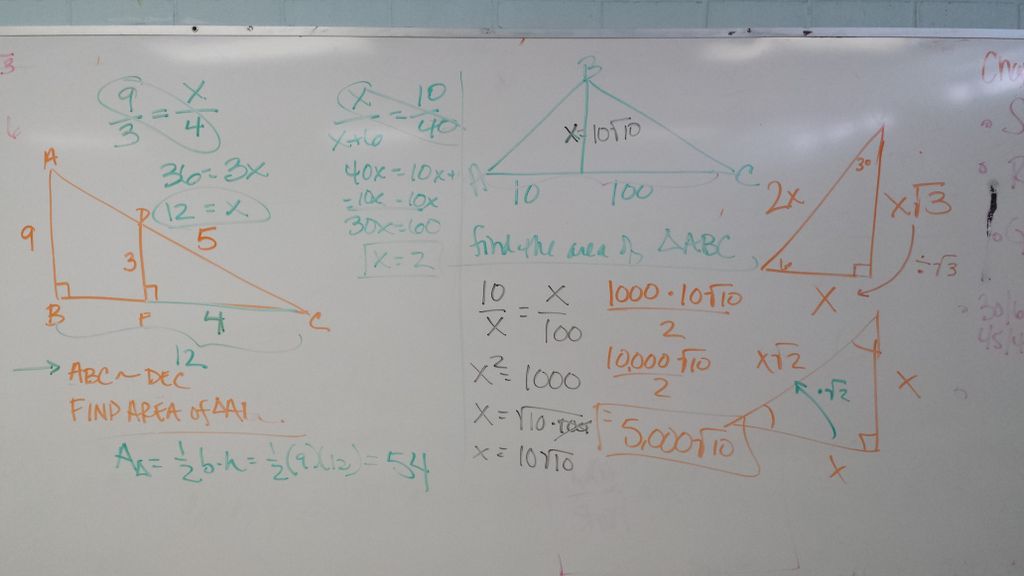 9/3 = x/4
36 = 3x
12 = x
A
9
B
D
3
5
4
C
12
→ ABC ~ DEC
FIND AREA OF
A△ = ½ b·h = ½(9)(12) = 54
x/x+6 = 10/40
40x = 10x+
-10x -10x
30x = 60
x = 2
B
x = 10√10
A
10
100
C
find the area of △ABC
10/x = x/100
x² = 1000
x = √10·100
x = 10√10
1000·10√10/2
10,000√10/2
= 5,000√10
30
2x
x√3
÷√3
6
x
x√2
·√2
x
x